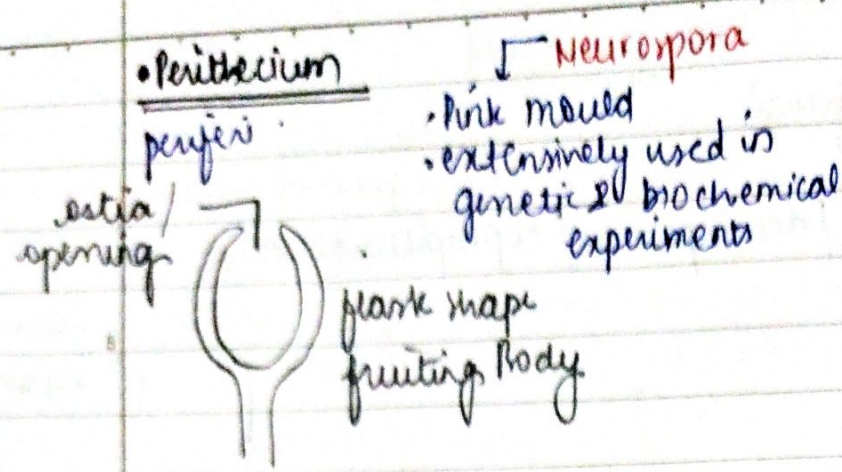 • Perithecium
perijeri
ostia /
opening
flask shape
fruiting Body
Neurospora
• Pink mould
• extensively used in
genetic & biochemical
experiments